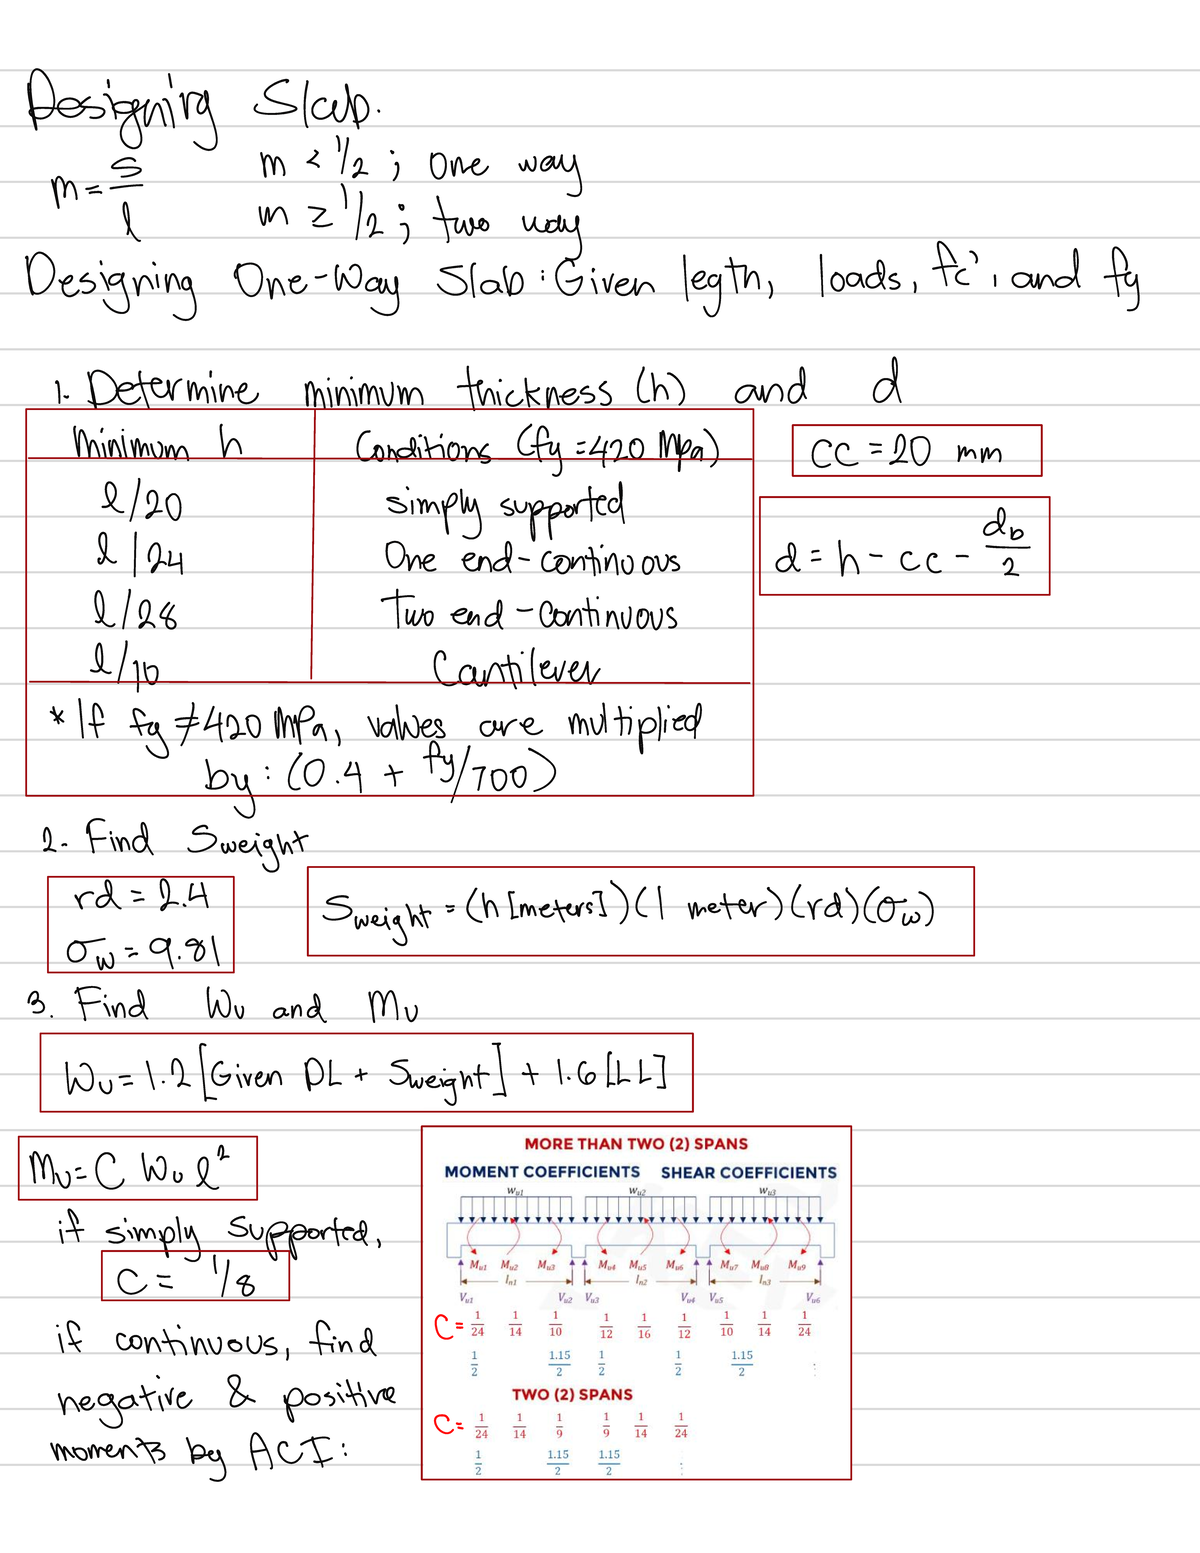 Designing Slab.
m = s/l
m < 1/2 ; One way
m ≥ 1/2 ; two way
Designing One-Way Slab : Given legth, loads, fc', and fy
1. Determine minimum thickness (h) and d
minimum h	Conditions (fy = 420 Mpa)
l/20	simply supported
l/24	One end-continuous
l/28	Two end-Continuous
l/10	Cantilever
* If fy ≠ 420 MPa, values are multiplied
by : (0.4 + fy/700)
CC = 20 mm
d = h - cc - db/2
2. Find Sweight
rd = 2.4
σw = 9.81
Sweight = (h [meters])(1 meter)(rd)(σw)
3. Find Wu and Mu
Wu = 1.2 [Given DL + Sweight] + 1.6 [LL]
Mu = C Wu l²
if simply supported,
C = 1/8
if continuous, find
negative & positive
moments by ACI :
MORE THAN TWO (2) SPANS
MOMENT COEFFICIENTS SHEAR COEFFICIENTS
Wu1 Wu2 Wu3
Mu1 Mu2 Mu3 Mu4 Mu5 Mu6 Mu7 Mu8 Mu9
ln1 ln2 ln3
Vu1 Vu2 Vu3 Vu4 Vu5 Vu6
C = 1/24 1/14 1/10 1/12 1/16 1/12 1/10 1/14 1/24
1/2 1.15/2 1/2 1/2 1.15/2
TWO (2) SPANS
C = 1/24 1/14 1/9 1/9 1/14 1/24
1/2 1.15/2 1.15/2